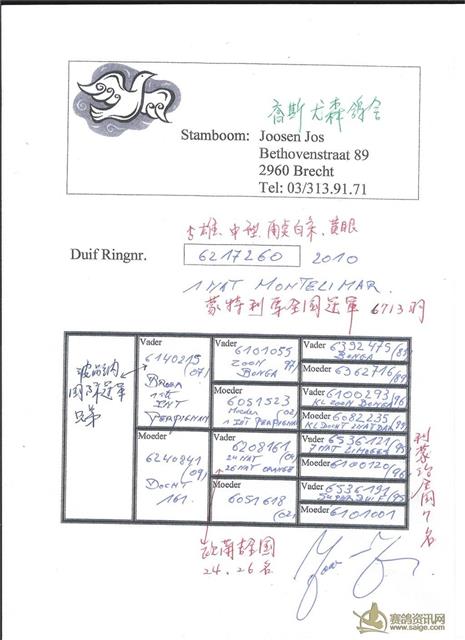 乔斯尤森鸽舍
Stamboom: Joosen Jos
Bethovenstraat 89
2960 Brecht
Tel: 03/313.91.71
雄、中型、雨点白条、黄眼
Duif Ringnr. 6217260 2010
1 NAT MONTELIMAR.
蒙特利马全国冠军 6713羽
波品纳
国际冠军
兄弟
Vader
6140215
(07)
BROER
1STE
INT
PERPIGNAN
Moeder
6240841
(09)
DOCHT
161.
Vader
6101055
ZOON
BONGA
Moeder
6051523
Moeder (02)
1 INT PERPIGNAN
Vader
6208161
24 NAT
26 NAT ORANGE
Moeder
6051618
(02)
Vader 6392475 (89)
BONGA
Moeder 6362716 (89)
Vader 6100293 (96)
KL ZOON BONGA
Moeder 6082235
KL DOCHT
Vader 6536121 (95)
7 NAT LIMOGES
Moeder 6100120 (96)
Vader 6536191 (95)
SUPER DUIF
Moeder 6101001
利蒙治全国7名
欧南吉全国
24、26名
赛鸽资讯网
www.saige.com